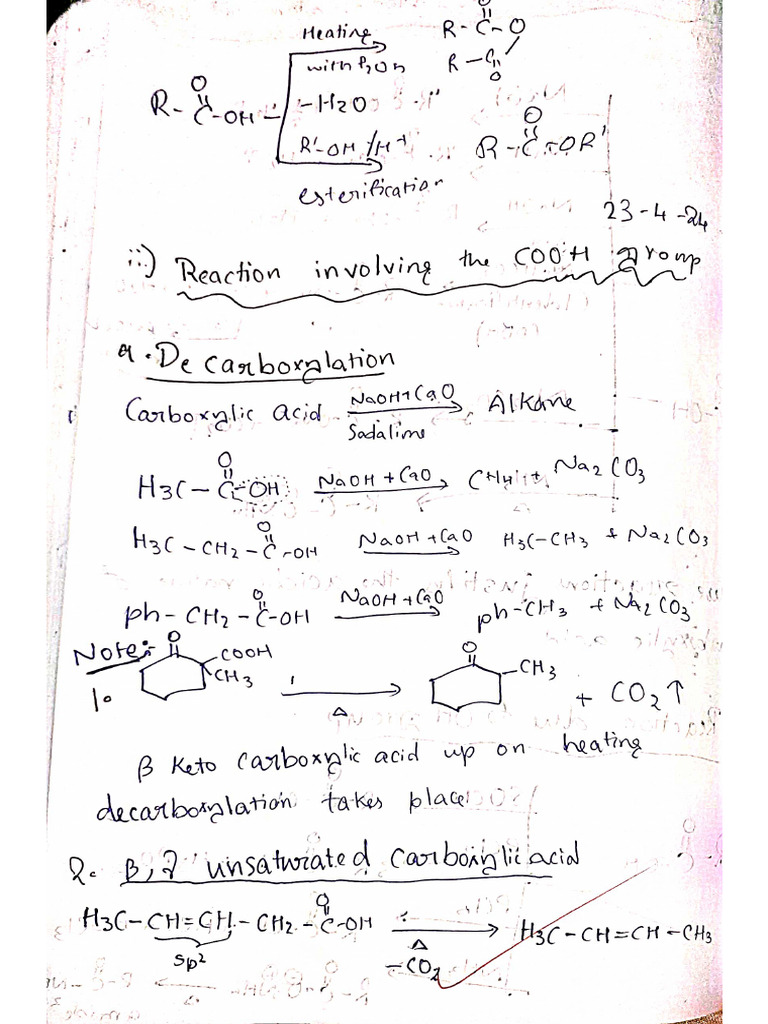 Heating
R-C-O
O
with P2O5
R-C
O
R-C-OH
O
-H2O
R'-OH/H+
R-C-OR'
O
esterification
23-4-24
ii) Reaction involving the COOH group
a. Decarboxylation
Carboxylic acid NaOH+CaO Alkane
Sodalime
H3C-C-OH NaOH+CaO CH4 + Na2CO3
O
H3C-CH2-C-OH NaOH+CaO H3C-CH3 + Na2CO3
O
ph-CH2-C-OH NaOH+CaO ph-CH3 + Na2CO3
O
Note:-
1. O COOH CH3 Δ O -CH3 + CO2↑
β Keto carboxylic acid up on heating
decarboxylation takes place
2. β,γ unsaturated carboxylic acid
H3C-CH=CH-CH2-C-OH Δ -CO2 H3C-CH=CH-CH3
O
sp2